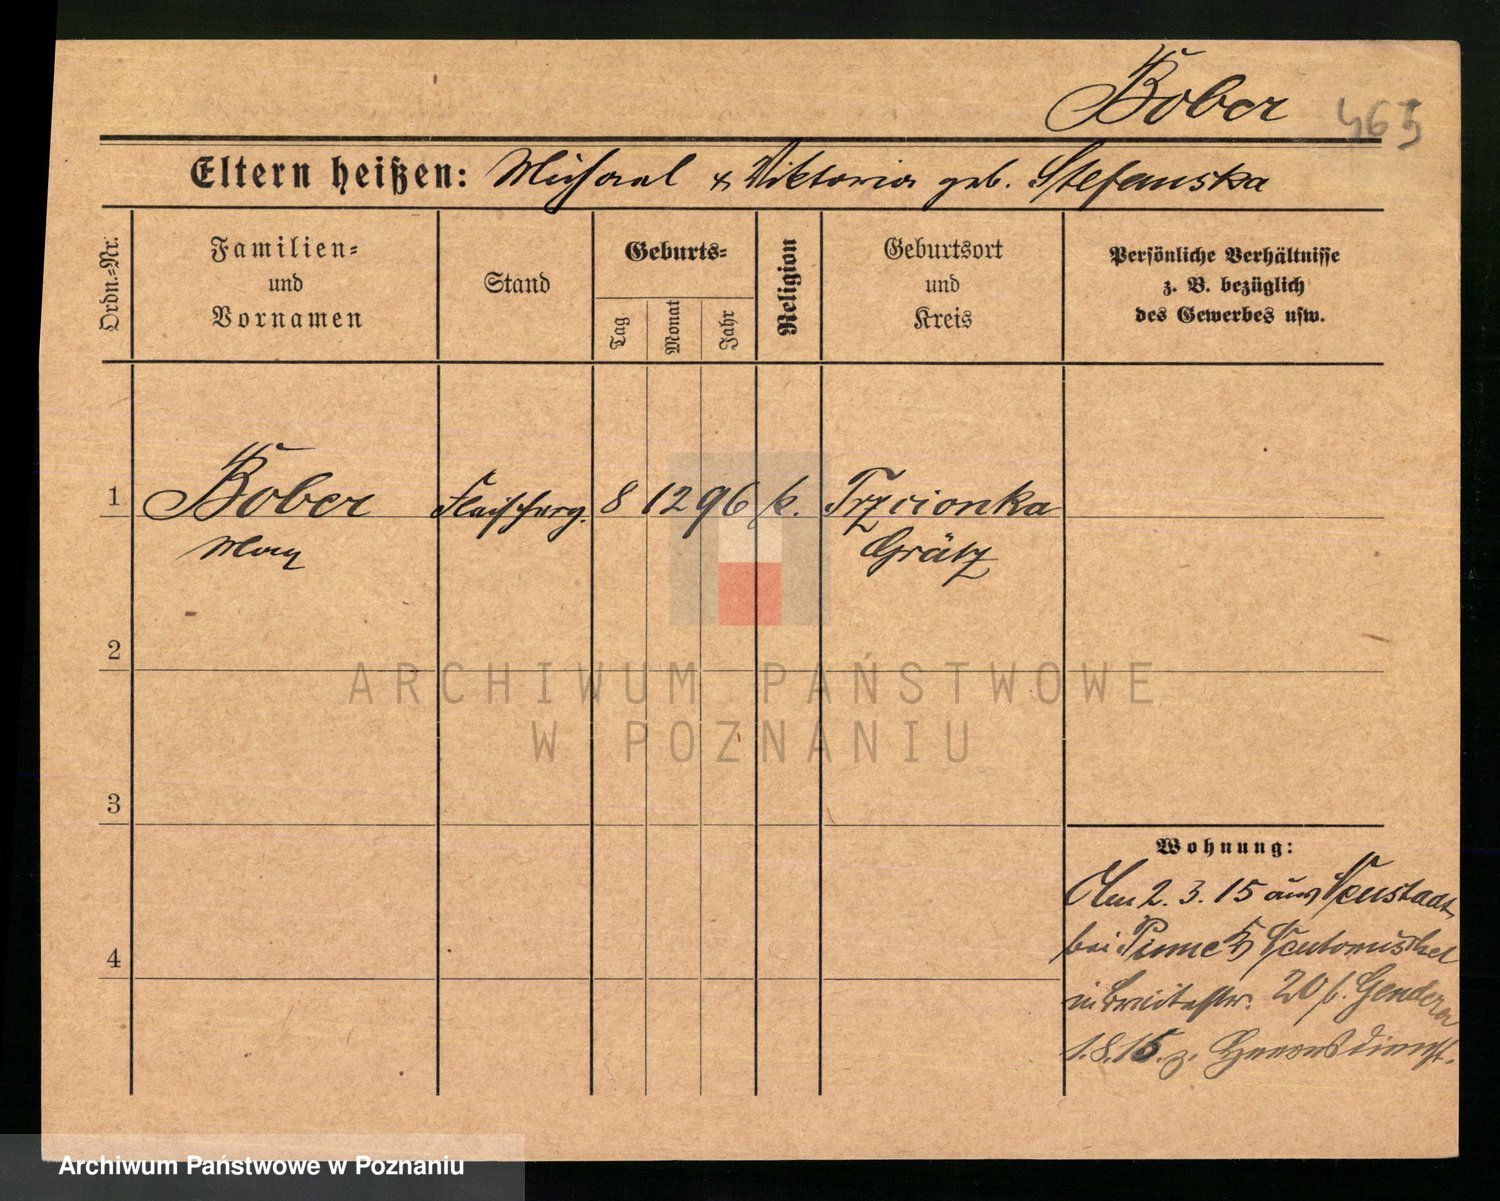 Bober 465
Eltern heißen: Michael & Viktoria geb. Stefanska
Ordn.=Nr.
Familien=
und
Vornamen
Stand
Geburts=
Tag
Monat
Jahr
Religion
Geburtsort
und
Kreis
Persönliche Verhältnisse
z. B. bezüglich
des Gewerbes usw.
1 Bober Fleischerg. 8 12 96 k. Trzcionka
Max Grätz
2
3
4
ARCHIWUM PAŃSTWOWE
W POZNANIU
Wohnung:
Am 2.3.15 aus Neustadt
bei Pinne Kr
in Breitestr. 20 b. Gendera
1.8.15. z. Heeresdienst.
Archiwum Państwowe w Poznaniu